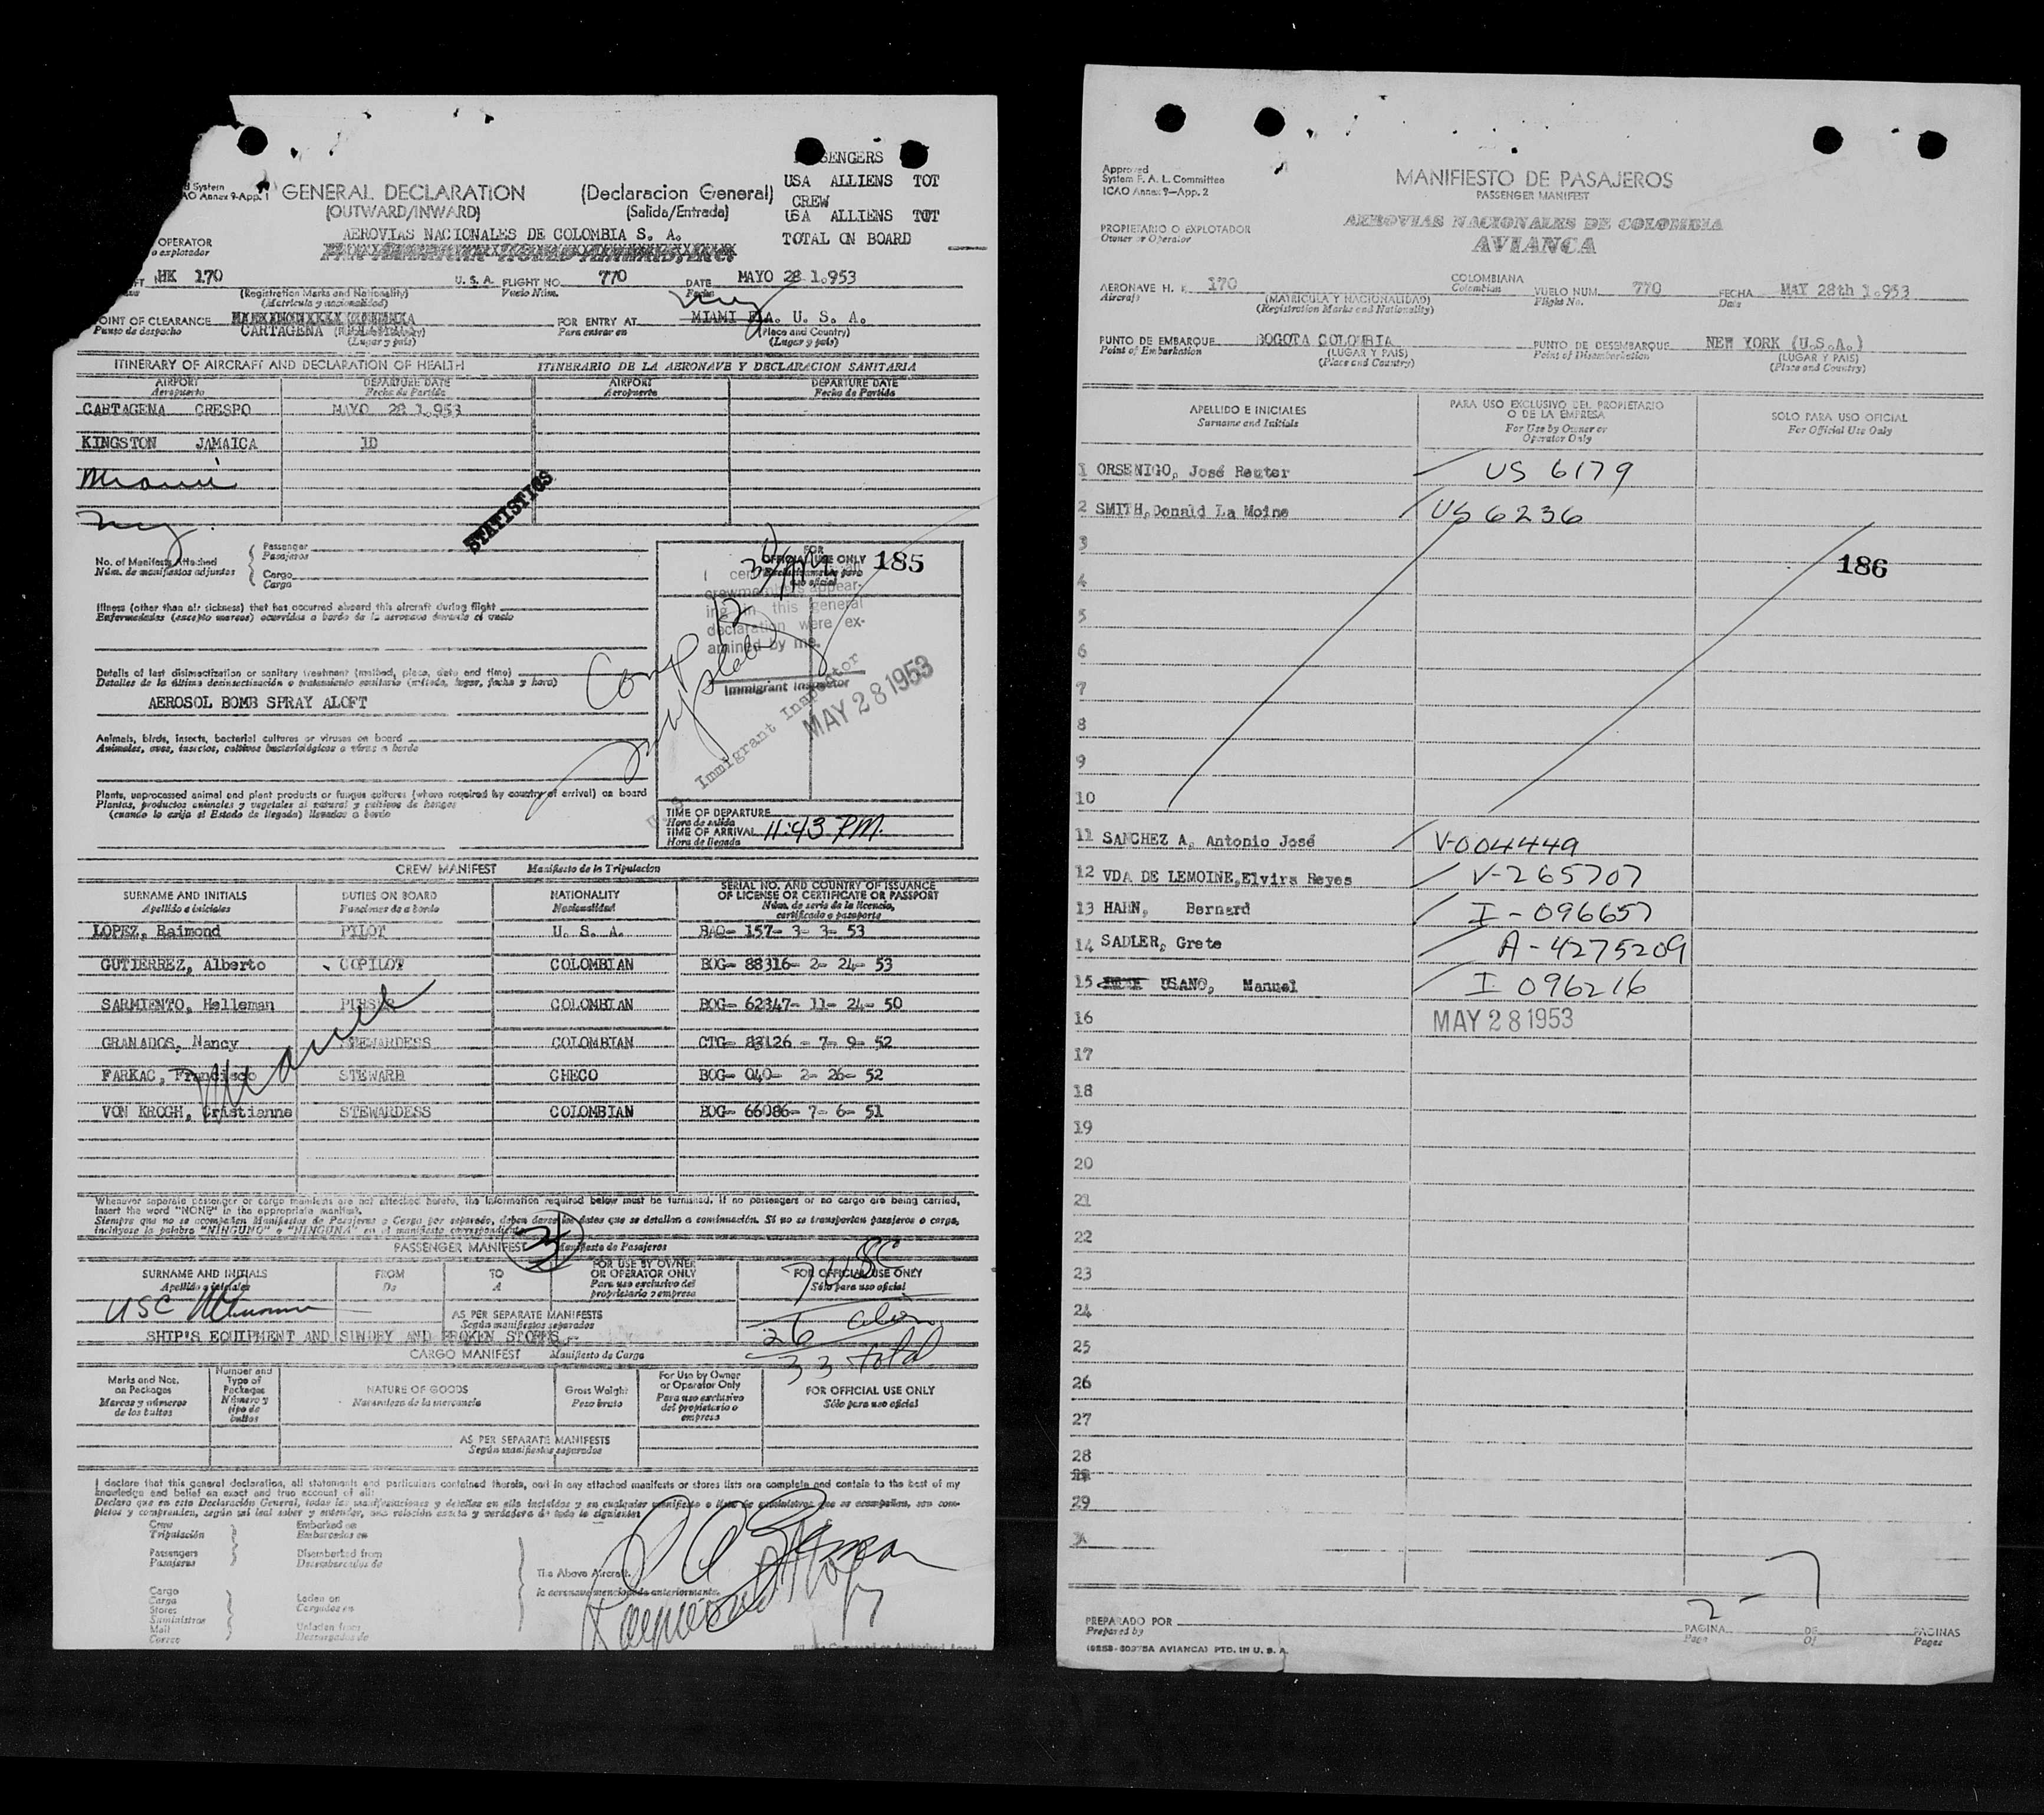 PASSENGERS
USA ALLIENS TOT
CREW
USA ALLIENS TOT
TOTAL ON BOARD
System
ICAO Annex 9-App. 1
GENERAL DECLARATION (Declaracion General)
(OUTWARD/INWARD) (Salida/Entrada)
OPERATOR AEROVIAS NACIONALES DE COLOMBIA S. A.
o explotador
HK 170 U. S. A. FLIGHT NO. 770 DATE MAYO 28 1.953
(Registration Marks and Nationality) Vuelo Núm. Fecha
(Matrícula y nacionalidad)
POINT OF CLEARANCE CARTAGENA FOR ENTRY AT MIAMI FLA. U. S. A.
Punto de despacho Para entrar en (Place and Country)
(Lugar y país) (Lugar y país)
ny
ITINERARY OF AIRCRAFT AND DECLARATION OF HEALTH ITINERARIO DE LA AERONAVE Y DECLARACION SANITARIA
AIRPORT DEPARTURE DATE AIRPORT DEPARTURE DATE
Aeropuerto Fecha de Partida Aeropuerto Fecha de Partida
CARTAGENA CRESPO MAYO 28 1.953
KINGSTON JAMAICA ID
Miami
ny.
STATISTICS
No. of Manifests Attached Passenger
Núm. de manifiestos adjuntos Pasajeros
Cargo
Carga
FOR
OFFICIAL USE ONLY 185
Illness (other than air sickness) that has occurred aboard this aircraft during flight
Enfermedades (excepto mareos) ocurridas a bordo de la aeronave durante el vuelo
crewmembers appear-
ing in this general
declaration were ex-
amined by me.
Immigrant Inspector
U.S. Immigrant Inspector
MAY 28 1953
Details of last disinsectization or sanitary treatment (method, place, date and time)
Detalles de la última desinsectización o tratamiento sanitario (método, lugar, fecha y hora)
AEROSOL BOMB SPRAY ALOFT
Animals, birds, insects, bacterial cultures or viruses on board
Animales, aves, insectos, cultivos bacteriológicos o virus a bordo
Plants, unprocessed animal and plant products or fungus cultures (where required by country of arrival) on board
Plantas, productos animales y vegetales al natural y cultivos de hongos
(cuando lo exija el Estado de llegada) llevados a bordo
TIME OF DEPARTURE
Hora de salida
TIME OF ARRIVAL 11:43 P.M.
Hora de llegada
CREW MANIFEST Manifiesto de la Tripulacion
SURNAME AND INITIALS DUTIES ON BOARD NATIONALITY SERIAL NO. AND COUNTRY OF ISSUANCE
OF LICENSE OR CERTIFICATE OR PASSPORT
Apellido e iniciales Funciones de a bordo Nacionalidad Núm. de serie de la licencia,
certificado o pasaporte
LOPEZ, Raimond PILOT U. S. A. BAQ- 157- 3- 3- 53
GUTIERREZ, Alberto COPILOT COLOMBIAN BOG- 88316- 2- 24- 53
SARMIENTO, Helleman PURSER COLOMBIAN BOG- 62347- 11- 24- 50
GRANADOS, Nancy STEWARDESS COLOMBIAN CTG- 83126 - 7- 9- 52
FARKAC, Francisco STEWARD CHECO BOG- 040- 2- 26- 52
VON KROGH, Cristianne STEWARDESS COLOMBIAN BOG- 66086- 7- 6- 51
Whenever separate passenger or cargo manifests are not attached hereto, the information required below must be furnished. If no passengers or no cargo are being carried,
insert the word "NONE" in the appropriate manifest.
Siempre que no se acompañen Manifiestos de Pasajeros o Carga por separado, deben darse los datos que se detallan a continuación. Si no se transportan pasajeros o carga,
inclúyase la palabra "NINGUNO" o "NINGUNA" en el manifiesto correspondiente.
PASSENGER MANIFEST Manifiesto de Pasajeros
SURNAME AND INITIALS FROM TO FOR USE BY OWNER FOR OFFICIAL USE ONLY
OR OPERATOR ONLY
Apellido e iniciales De A Para uso exclusivo del Sólo para uso oficial
propietario o empresa
7 USC
USC
AS PER SEPARATE MANIFESTS
Según manifiestos separados
26 alien
SHIP'S EQUIPMENT AND SUNDRY AND BROKEN STORES.-
33 total
CARGO MANIFEST Manifiesto de Carga
Marks and Nos. Number and NATURE OF GOODS Gross Weight For Use by Owner FOR OFFICIAL USE ONLY
on Packages Type of Naturaleza de la mercancía Peso bruto or Operator Only Sólo para uso oficial
Marcas y números Packages Para uso exclusivo
de los bultos Número y del propietario o
tipo de empresa
bultos
AS PER SEPARATE MANIFESTS
Según manifiestos separados
I declare that this general declaration, all statements and particulars contained therein, and in any attached manifests or stores lists are complete and contain to the best of my
knowledge and belief an exact and true account of all:
Declaro que en esta Declaración General, todas las manifestaciones y detalles en ella incluidos y en cualquier manifiesto o lista de suministros que se acompañan, son com-
pletos y comprenden, según mi leal saber y entender, una relación exacta y verdadera de todo lo siguiente:
Crew Embarked on
Tripulación Embarcados en
Passengers Disembarked from
Pasajeros Desembarcados de
The Above Aircraft.
la aeronave mencionada anteriormente.
Cargo Laden on
Carga Cargados en
Stores
Suministros
Mail Unladen from
Correo Descargados de
Approved
System F. A. L. Committee
ICAO Annex 9—App. 2
MANIFIESTO DE PASAJEROS
PASSENGER MANIFEST
PROPIETARIO O EXPLOTADOR AEROVIAS NACIONALES DE COLOMBIA
Owner or Operator AVIANCA
AERONAVE H. K. 170 COLOMBIANA VUELO NUM. 770 FECHA MAY 28th 1.953
Aircraft (MATRICULA Y NACIONALIDAD) Colombian Flight No. Date
(Registration Marks and Nationality)
PUNTO DE EMBARQUE BOGOTA COLOMBIA PUNTO DE DESEMBARQUE NEW YORK (U.S.A.)
Point of Embarkation (LUGAR Y PAIS) Point of Disembarkation (LUGAR Y PAIS)
(Place and Country) (Place and Country)
APELLIDO E INICIALES PARA USO EXCLUSIVO DEL PROPIETARIO SOLO PARA USO OFICIAL
Surname and Initials O DE LA EMPRESA For Official Use Only
For Use by Owner or
Operator Only
1 ORSENIGO, José Reuter US 6179
2 SMITH, Donald La Moine US 6236
3
4 186
5
6
7
8
9
10
11 SANCHEZ A, Antonio José V-004449
12 VDA DE LEMOINE, Elvira Reyes V-265707
13 HAHN, Bernard I-096657
14 SADLER, Grete A-4275209
15 USANO, Manuel I 096216
16 MAY 28 1953
17
18
19
20
21
22
23
24
25
26
27
28
29
PREPARADO POR PAGINA 2 DE 7 PAGINAS
Prepared by Page Of Pages
(9258-60375A AVIANCA) PTD. IN U. S. A.